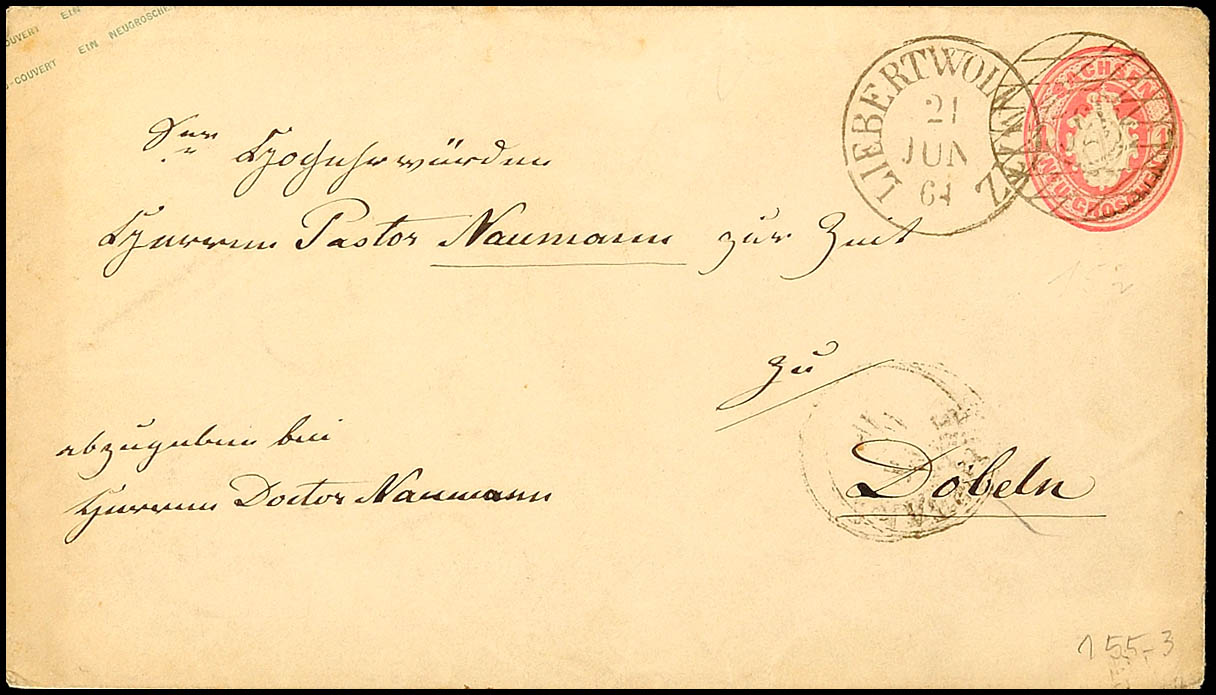 COUVERT EIN
-COUVERT EIN NEUGROSCHEN
LIEBERTWOLKWITZ
21
JUN
64
SACHSEN
1 1
NEUGROSCHEN
Sr
Hochehrwürden
Herrn Pastor Naumann zur Zeit
zu
Döbeln
abzugeben bei
Herrn Doctor Naumann
152
155,-3